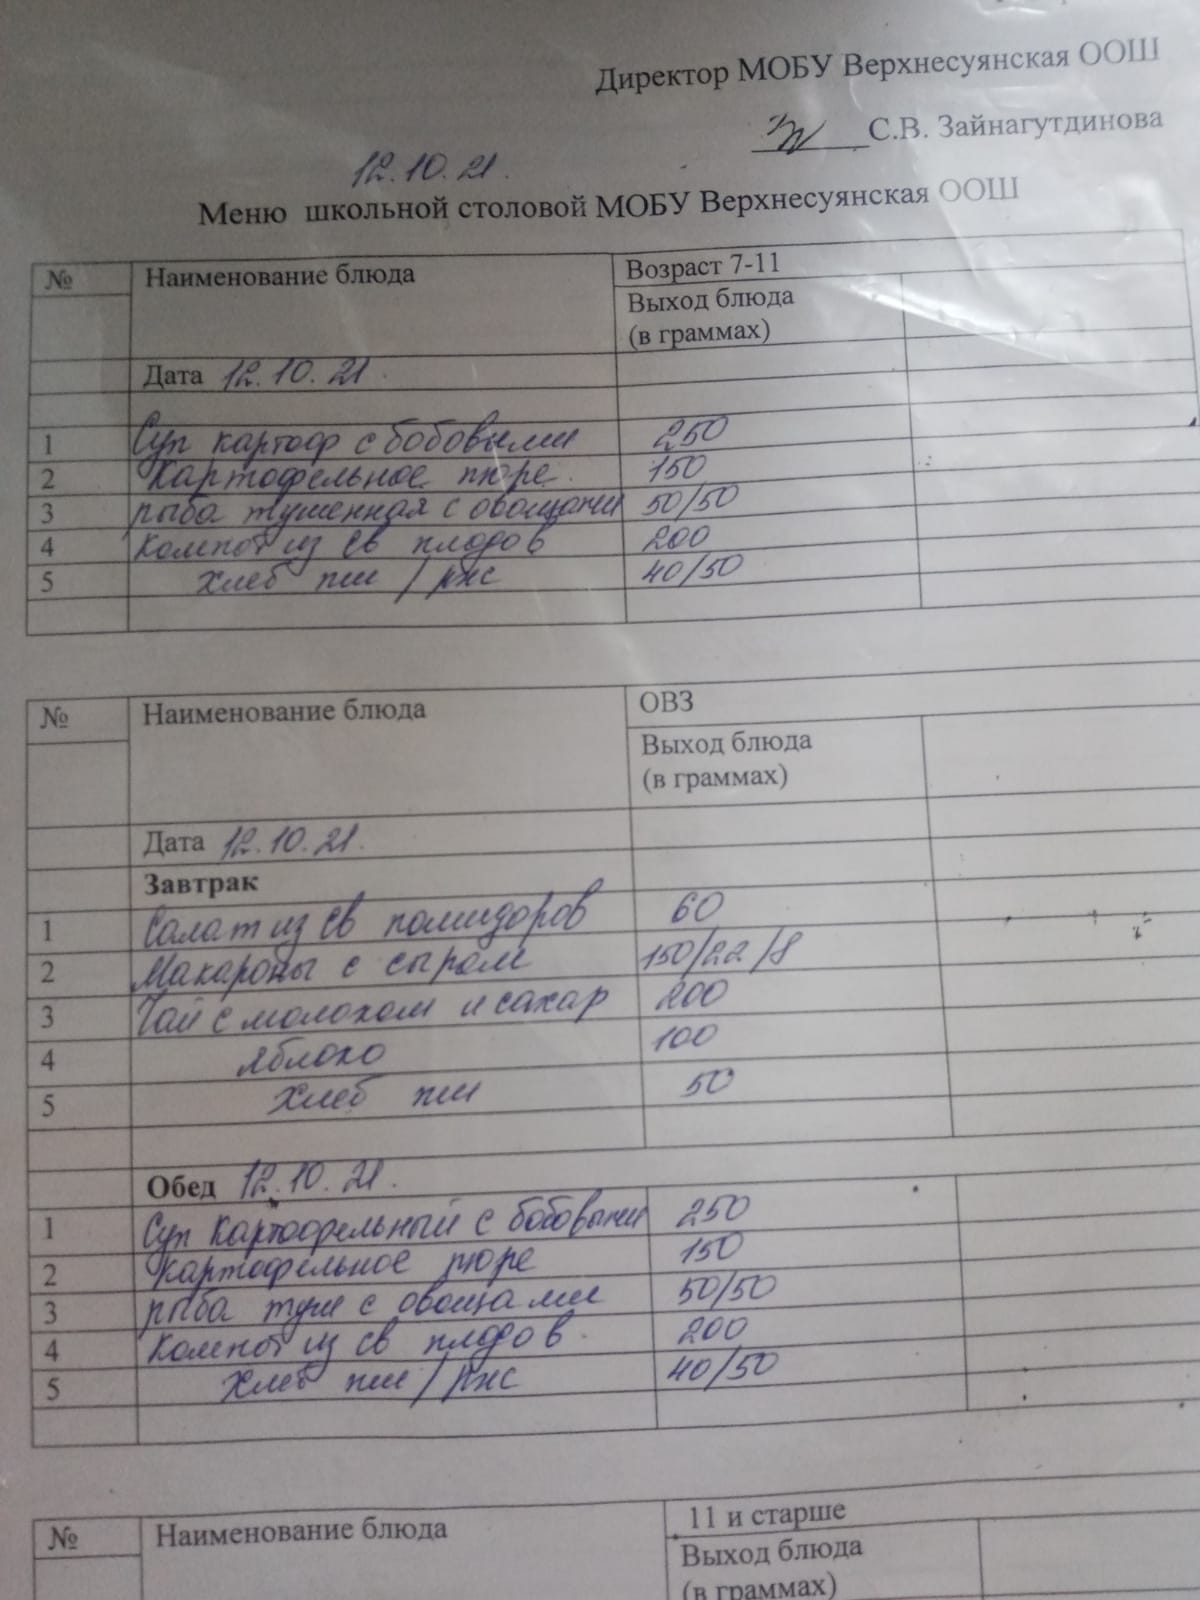 Директор МОБУ Верхнесуянская ООШ
С.В. Зайнагутдинова
12.10.21.
Меню школьной столовой МОБУ Верхнесуянская ООШ
№ Наименование блюда Возраст 7-11
Выход блюда
(в граммах)
Дата 12.10.21.
1 Суп картоф с бобовыми 250
2 Картофельное пюре 150
3 рыба тушенная с овощами 50/50
4 Компот из св плодов 200
5 Хлеб пш / ржс 40/50
№ Наименование блюда ОВЗ
Выход блюда
(в граммах)
Дата 12.10.21.
Завтрак
1 Салат из св помидоров 60
2 Макароны с сыром 150/22/8
3 Чай с молоком и сахар 200
4 яблоко 100
5 Хлеб пш 50
Обед 12.10.21.
1 Суп картофельный с бобовыми 250
2 картофельное пюре 150
3 рыба туш с овощами 50/50
4 Компот из св плодов 200
5 Хлеб пш / ржс 40/50
№ Наименование блюда 11 и старше
Выход блюда
(в граммах)